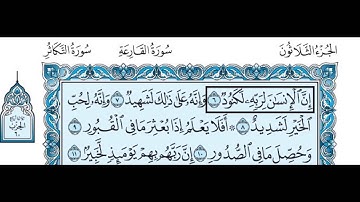 الجزء الثلاثون
سورة القارعة
سورة التكاثر
إِنَّ ٱلْإِنسَٰنَ لِرَبِّهِۦ لَكَنُودٌ ٦ وَإِنَّهُۥ عَلَىٰ ذَٰلِكَ لَشَهِيدٌ ٧ وَإِنَّهُۥ لِحُبِّ
ٱلْخَيْرِ لَشَدِيدٌ ٨ ۞ أَفَلَا يَعْلَمُ إِذَا بُعْثِرَ مَا فِى ٱلْقُبُورِ ٩
وَحُصِّلَ مَا فِى ٱلصُّدُورِ ١٠ إِنَّ رَبَّهُم بِهِمْ يَوْمَئِذٍ لَّخَبِيرٌۢ ١١
الحزب
٦٠